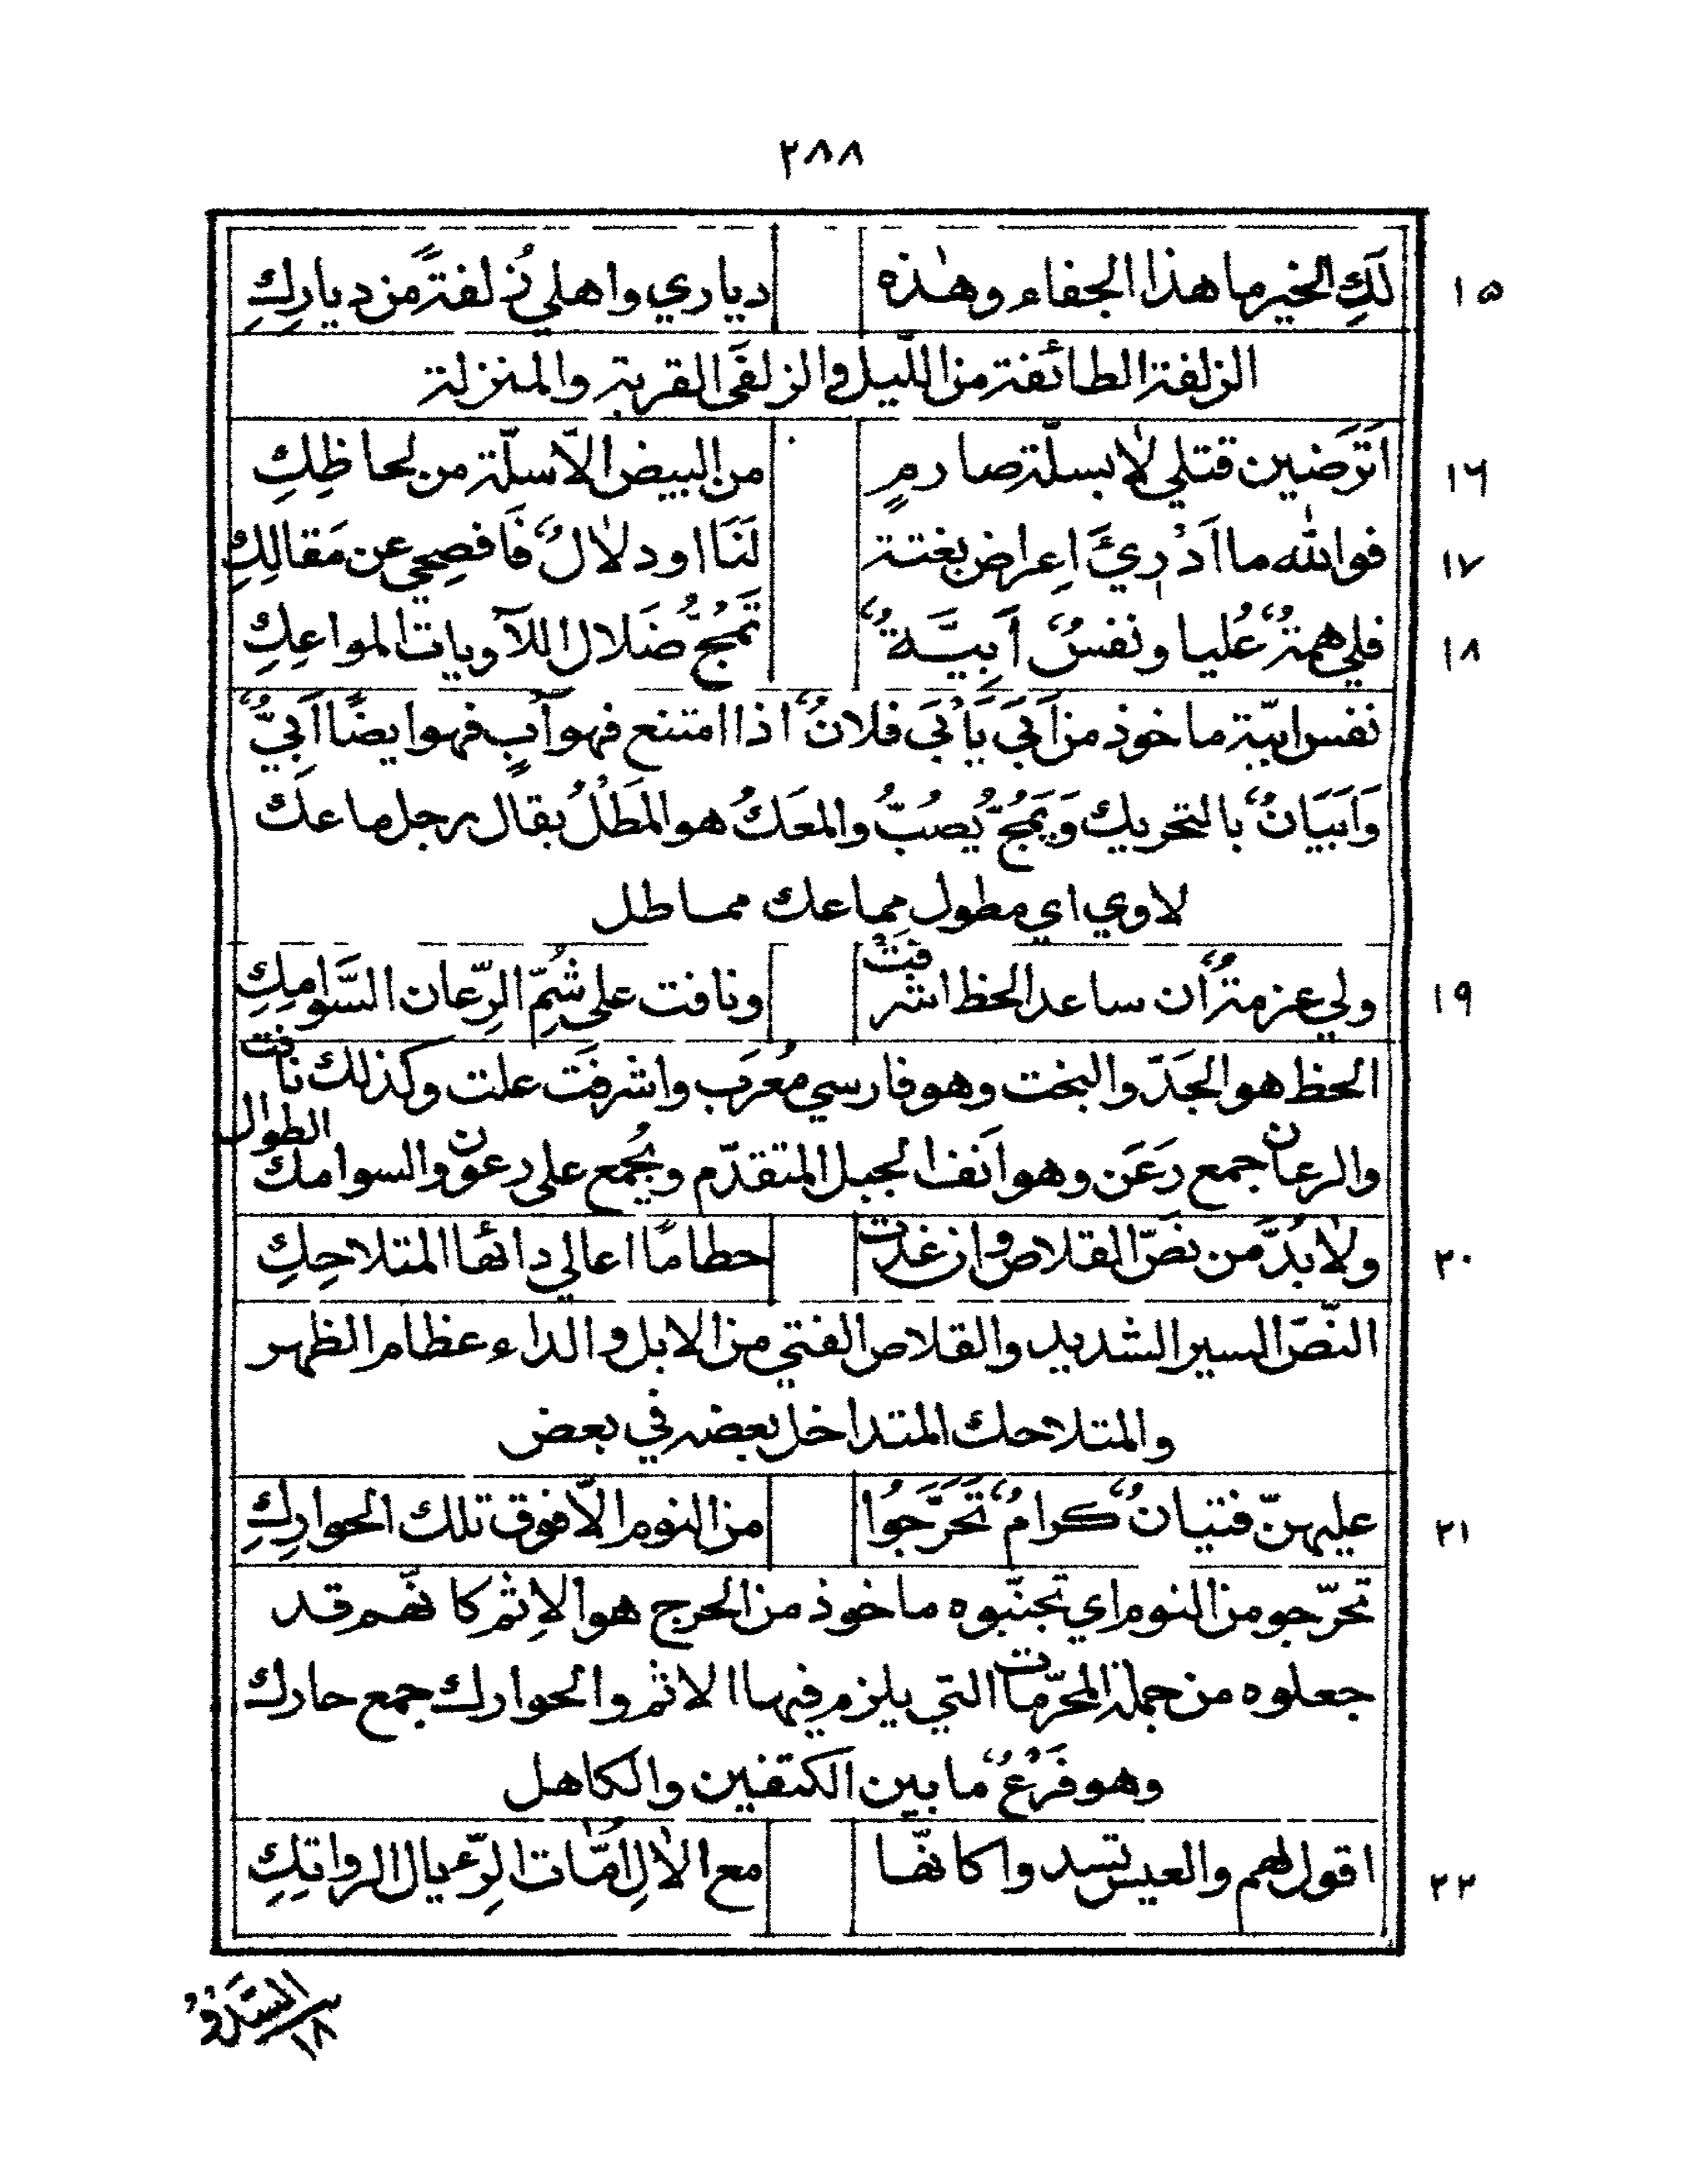 ٢٨٨
١٥ لَكِ الخير ما هذا الجفاء وهٰذه دياري واهلي زُلفةً من ديارِكِ
الزلفة الطائفة من اللّيل والزلفَى القربة والمنزلة
١٦ اَتَرضَين قتلي لا بسلّة صارمٍ من البيض الّا سلّة من لحاظِكِ
١٧ فوالله ما اَدْرِيَ اِعراض بغتة لَنَا او دلالٌ فَافصِحي عن مَقالِكِ
١٨ فلي همةٌ عُليا ونفسٌ اَبِيَّةٌ تَمُجُّ ضَلال اللآويات المواعِكِ
نفس ابيّة ماخوذ من اَبَى يَأبَى فلانٌ اذا امتنع فهو آبٍ فهو ايضًا اَبِيٌّ
وَاَبَيَانٌ بالتحريك وَيَمُجُّ يُصبُّ والمَعَكُ هو المَطْلُ يقال رجل ماعك
لاوي اي مطول مِماعك مماطل
١٩ ولي عزمةٌ اِن ساعد الحظ اشرفتْ ونافت على شُمِّ الرِّعان السَّوامِكِ
الحظ هو الجَدّ والبخت وهو فارسي مُعرَب واشرفَت علت وكذلك نافت
والرعان جمع رَعَن وهو اَنف الجبل المتقدّم ويُجمع على رعون والسوامك الطوال
٢٠ ولا بُدَّ من نَصّ القلاص وان غدت حطامًا اعالي دائها المتلاحِكِ
النّصّ السير الشديد والقلاص الفتي من الابل والداء عظام الظهر
والمتلاحك المتداخل بعضه في بعض
٢١ عليهنّ فتيانٌ كرامٌ تَحَرَّجَوُا من النوم الّا فوق تلك الحوارِكِ
تحرّجو من النوم اي تجنّبوه ماخوذ من الحرج هو الاِثم كانّهم قد
جعلوه من جملة المحرّمات التي يلزم فيها الاثم والحوارك جمع حارك
وهو فَرْعٌ ما بين الكتفين والكاهل
٢٢ اقول لهم والعيس تسدوا كانّها مع الاٰلِ امّات الرِّعيال الرواتِكِ
١٨